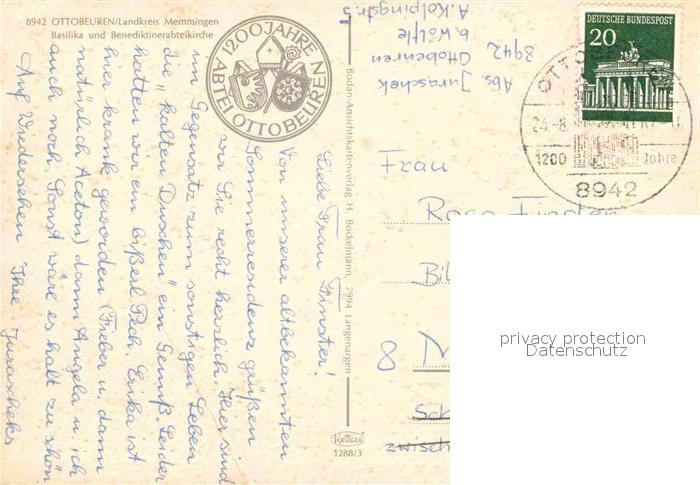 8942 OTTOBEUREN/Landkreis Memmingen
Basilika und Benediktinerabteikirche
1200 JAHRE
ABTEI OTTOBEUREN
Liebe Frau Finster!
Von unserer altbekannten
Sommerresidenz grüßen
wir Sie recht herzlich. Hier sind
im Gegensatz zum sonstigen Leben
die "kalten Duschen" ein Genuß. Leider
hatten wir ein bißerl Pech. Erika ist
hier krank geworden (Fieber u. dann
natürlich Aceton) dann Angela u. ich
auch noch. Sonst wäre es halt zu schön
Auf Wiedersehen Ihre Jurascheks
Bodan-Ansichtskartenverlag H. Bockelmann, 7994 Langenargen
KRÜGER
1288/3
Abs. Juraschek
8942 Ottobeuren
b. Wölfle
A. Kolpingstr. 5
DEUTSCHE BUNDESPOST
20
1200 Jahre
8942
Frau
Rosa
8 M
privacy protection
Datenschutz